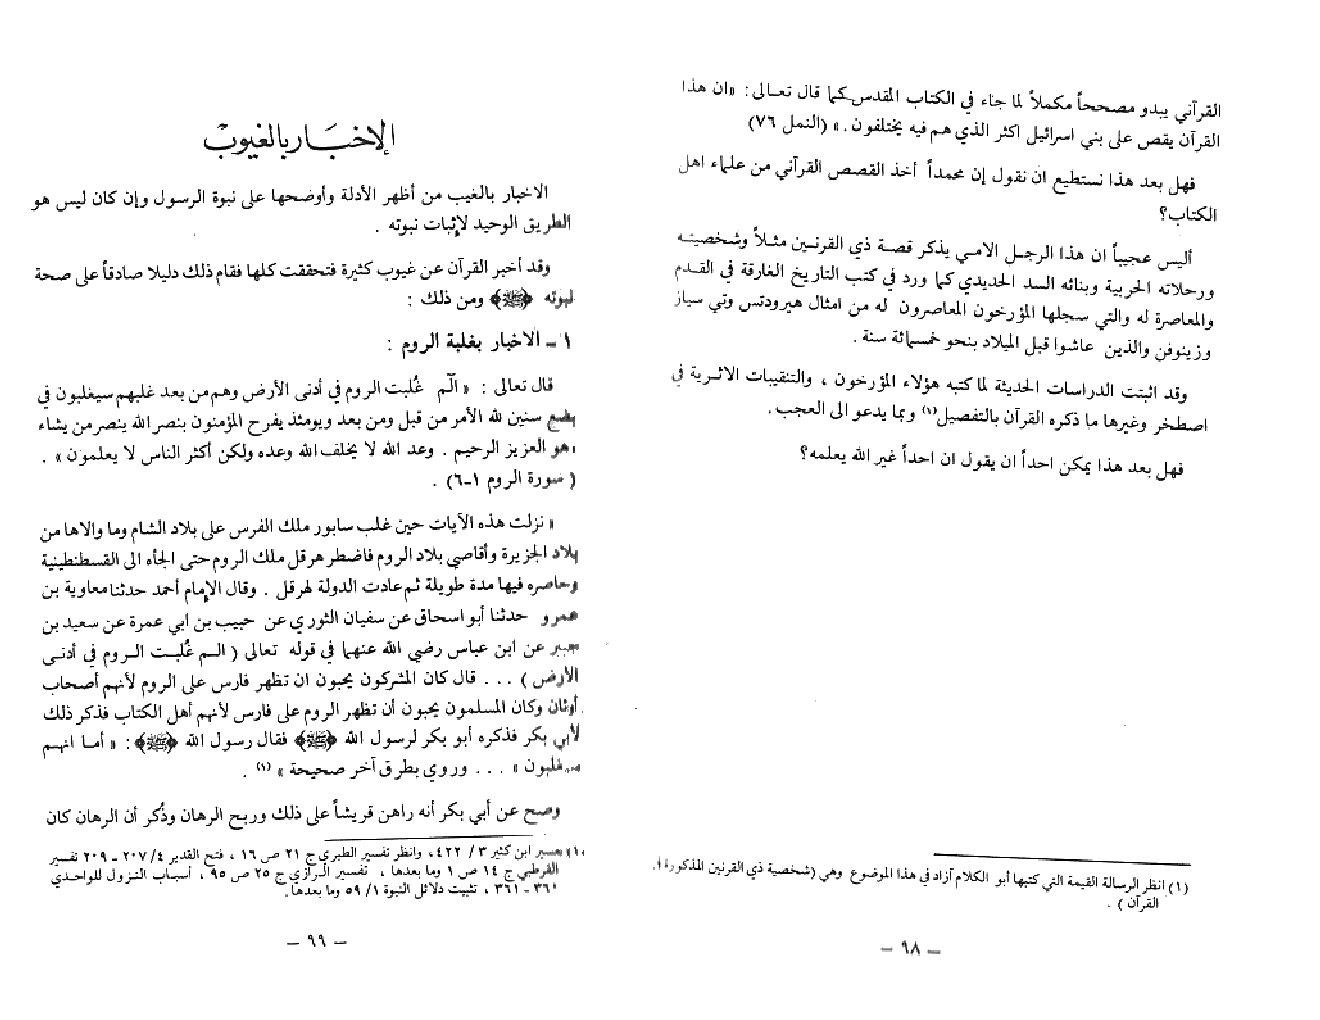 القرآني يبدو مصححاً مكملاً لما جاء في الكتاب المقدس كما قال تعالى: «ان هذا
القرآن يقص على بني اسرائيل اكثر الذي هم فيه يختلفون.» (النمل ٧٦)
فهل بعد هذا نستطيع ان نقول إن محمداً أخذ القصص القرآني من علماء اهل
الكتاب؟
أليس عجيباً ان هذا الرجل الامي يذكر قصة ذي القرنين مثلاً وشخصيته
ورحلاته الحربية وبنائه السد الحديدي كما ورد في كتب التاريخ الغارقة في القدم
والمعاصرة له والتي سجلها المؤرخون المعاصرون له من امثال هيرودتس وتي سياز
وزينوفن والذين عاشوا قبل الميلاد بنحو خمسمائة سنة .
وقد اثبتت الدراسات الحديثة لما كتبه هؤلاء المؤرخون ، والتنقيبات الاثرية في
اصطخر وغيرها ما ذكره القرآن بالتفصيل(١) وبما يدعو الى العجب .
فهل بعد هذا يمكن احداً ان يقول ان احداً غير الله يعلمه؟
(١) انظر الرسالة القيمة التي كتبها أبو الكلام آزاد في هذا الموضوع وهي (شخصية ذي القرنين المذكورة في
القرآن ) .
— ٦٨ —
الاخبار بالغيوب
الاخبار بالغيب من أظهر الأدلة وأوضحها على نبوة الرسول وإن كان ليس هو
الطريق الوحيد لإثبات نبوته .
وقد أخبر القرآن عن غيوب كثيرة فتحققت كلها فقام ذلك دليلا صادقاً على صحة
نبوته ﴿ﷺ﴾ ومن ذلك :
١ - الاخبار بغلبة الروم :
قال تعالى : « الّم غُلبت الروم في أدنى الأرض وهم من بعد غلبهم سيغلبون في
بضع سنين لله الأمر من قبل ومن بعد ويومئذ يفرح المؤمنون بنصر الله ينصر من يشاء
وهو العزيز الرحيم . وعد الله لا يخلف الله وعده ولكن أكثر الناس لا يعلمون » .
( سورة الروم ١-٦ ) .
« نزلت هذه الآيات حين غلب سابور ملك الفرس على بلاد الشام وما والاها من
بلاد الجزيرة وأقاصي بلاد الروم فاضطر هرقل ملك الروم حتى الجأه الى القسطنطينية
وحاصره فيها مدة طويلة ثم عادت الدولة لهرقل . وقال الإمام أحمد حدثنا معاوية بن
عمرو حدثنا أبو اسحاق عن سفيان الثوري عن حبيب بن ابي عمرة عن سعيد بن
جبير عن ابن عباس رضي الله عنهما في قوله تعالى ( الـم غُلبت الروم في أدنى
الأرض ) . . . قال كان المشركون يحبون ان تظهر فارس على الروم لأنهم أصحاب
أوثان وكان المسلمون يحبون أن تظهر الروم على فارس لأنهم أهل الكتاب فذكر ذلك
لأبي بكر فذكره أبو بكر لرسول الله ﴿ﷺ﴾ فقال رسول الله ﴿ﷺ﴾ : « أما انهم
سيغلبون » . . . وروي بطرق آخر صحيحة » (١) .
وصح عن أبي بكر أنه راهن قريشاً على ذلك وربح الرهان وذُكر أن الرهان كان
(١) تفسير ابن كثير ٣ / ٤٢٢ ، وانظر تفسير الطبري ج ٢١ ص ١٦ ، فتح القدير ٤ / ٢٠٧ - ٢٠٩ تفسير
القرطبي ج ١٤ ص ١ وما بعدها ، تفسير الرازي ج ٢٥ ص ٩٥ ، أسباب النزول للواحدي
٣٦٠ - ٣٦١ ، تثبيت دلائل النبوة ١ / ٥٩ وما بعدها .
— ٦٩ —